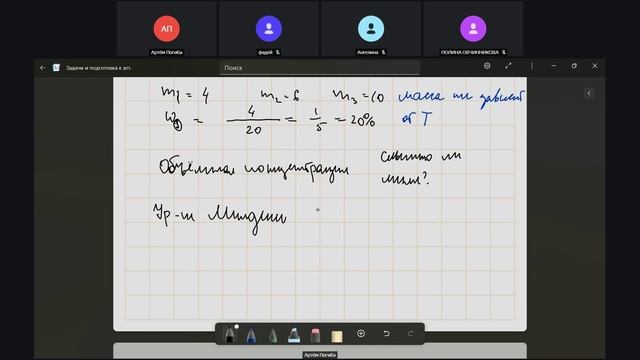 АП
Артём Погиба
фадей
Ангелина
ПОЛИНА ОВЧИННИКОВА
Задачи и подготовка к атт.
Поиск
m₁ = 4 m₂ = 6 m₃ = 10 масса не зависит
ω = 4/20 = 1/5 = 20% от T
Объёмная концентрация Слышно ли
меня?
Ур-ие
Артём Погиба